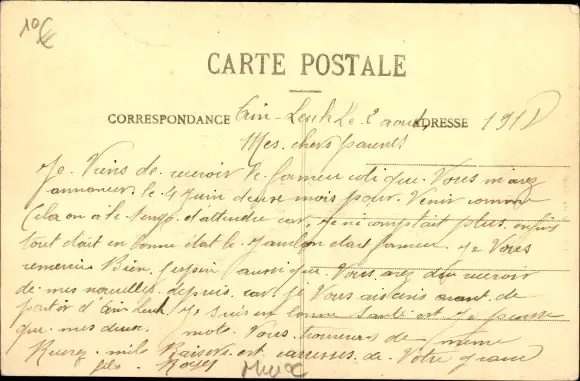 10€
CARTE POSTALE
CORRESPONDANCE
ADRESSE
Le 2 août 191
Mes chers parents
Je Viens de recevoir le fameu colique Vous m'avez
annoncer le 4 Juin deux mois pour Venir comme
Cela on a le temps d'attendre car Je ni comptait plus enfin
tout était en bonne état le Jambon était fameu Je Vous
remerci Bien J'espèr aussi que Vous avez du recevoir
de mes nouvelles depuis car Je Vous avant de
partir d' Je suis en bonne Santé et Je pense
que mes deux mots Vous trouverons de même
mile Baisers et carresses de Votre grand
fils